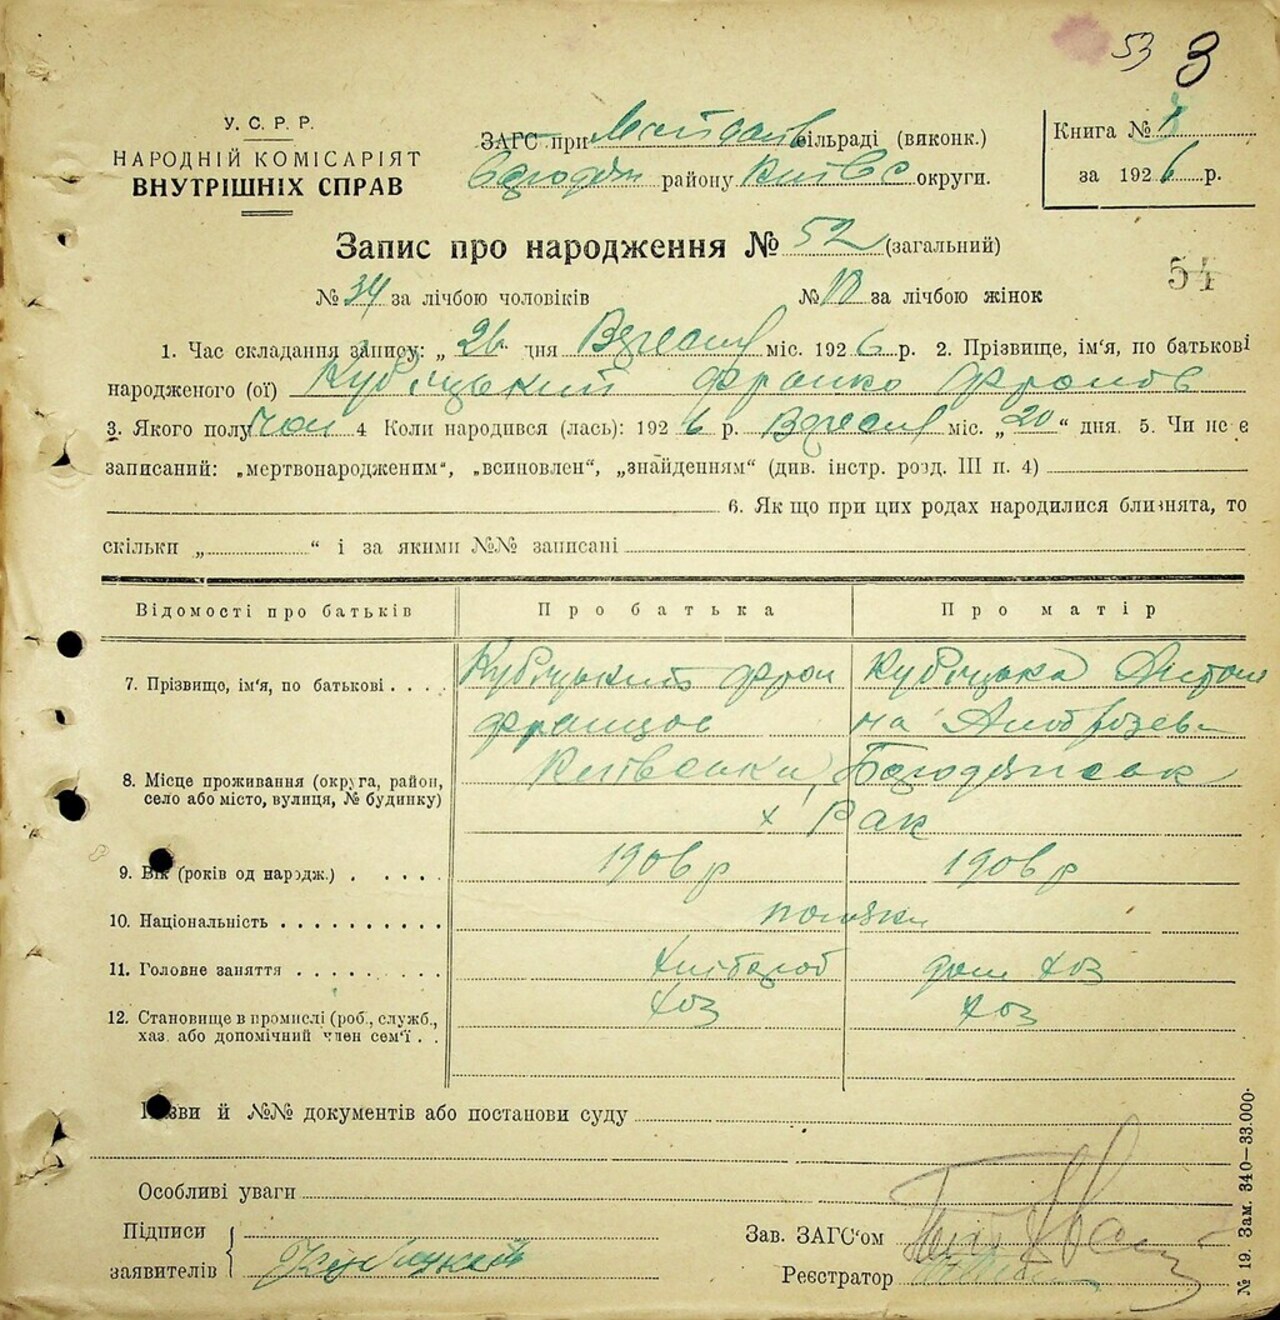 53 3
У. С. Р. Р.
НАРОДНІЙ КОМІСАРІЯТ
ВНУТРІШНІХ СПРАВ
ЗАГС при Майданів сільраді (виконк.)
Бородян району Київс округи.
Книга №
за 1926 р.
Запис про народження № 52 (загальний)
54
№ 34 за лічбою чоловіків № 18 за лічбою жінок
1. Час складання запису: „ 26 " дня Вересня міс. 1926 р. 2. Прізвище, ім'я, по батькові
народженого (ої) Кубіцький Франко Франов
3. Якого полу Чол 4 Коли народився (лась): 1926 р. Вересня міс. „ 20 " дня. 5. Чи не є
записаний: „мертвонародженим", „всиновлен", „знайденням" (див. інстр. розд. III п. 4)
6. Як що при цих родах народилися близнята, то
скільки „ " і за якими №№ записані
Відомості про батьків Про батька Про матір
7. Прізвищо, ім'я, по батькові . . . . Кубіцький Фран Кубіцька Антоні
Францов на Амброзев
8. Місце проживання (округа, район, село або місто, вулиця, № будинку) Київська, Бородянськ
х Рак
9. Вік (років од народж.) . . . . . 1906 р 1906 р
10. Національність . . . . . . . . . . поляки
11. Головне заняття . . . . . . . . хлібороб дом хоз
12. Становище в промислі (роб., служб., хоз хоз
хаз. або допомічний член сем'ї . .
Назви й №№ документів або постанови суду
Особливі уваги
Підписи
заявителів Кубицкий
Зав. ЗАГС'ом
Реєстратор
№ 19. Зам. 340—33.000.